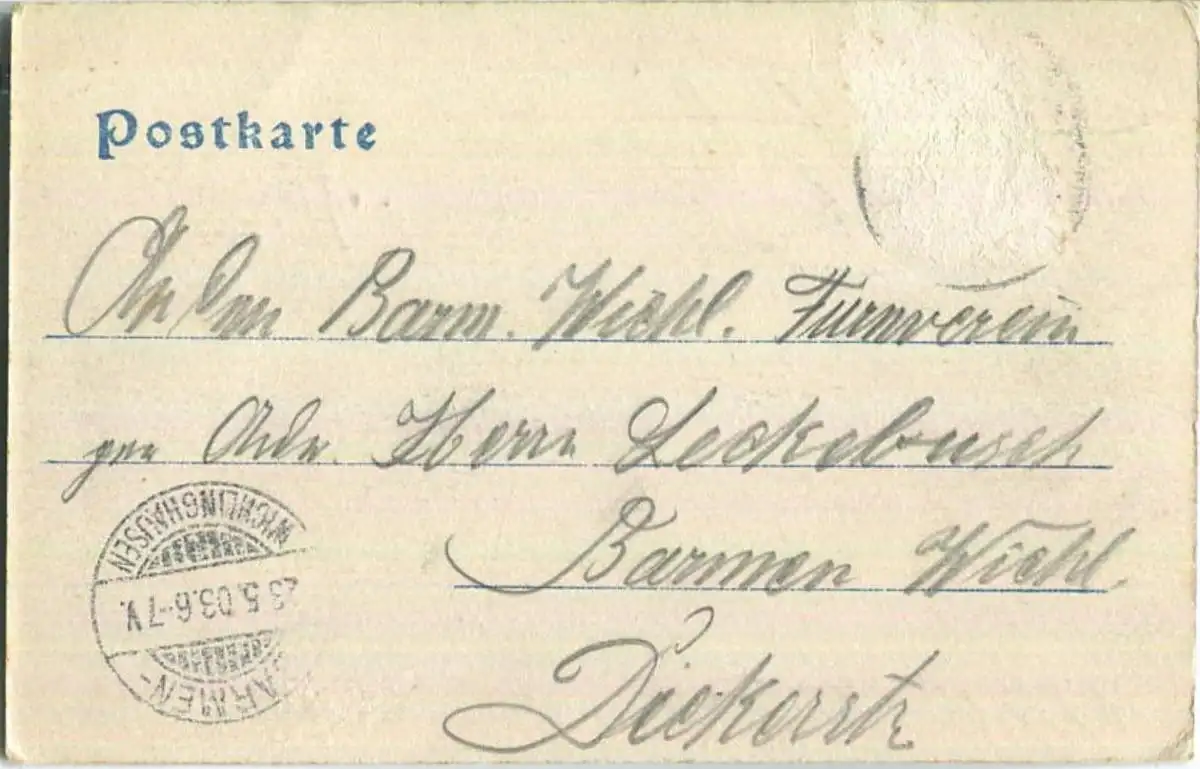 Postkarte
An den Barm. Wichl. Turnverein
per Adr. Herrn Leckebusch
Barmen Wichl.
Dickerstr
WICHLINGHAUSEN
23.5.03.6-7V.
BARMEN-